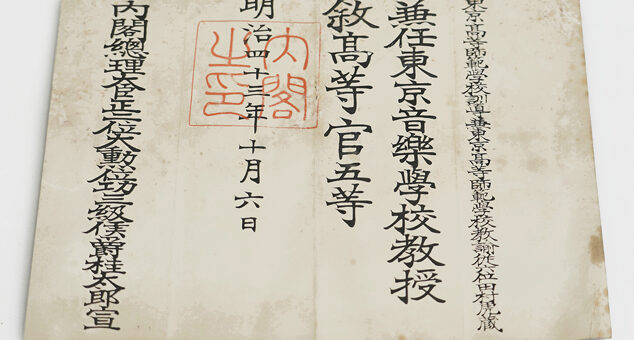 東京高等師範學校訓導兼東京高等師範學校教諭従七位田村虎蔵
兼任東京音樂學校教授
敘髙等官五等
明治四十三年十月六日
内閣之印
内閣總理大臣正二位大勲位功三級侯爵桂太郎宣